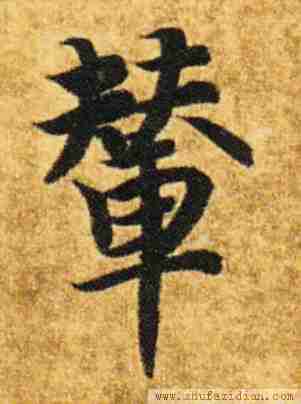 輦
www.shufazidian.com